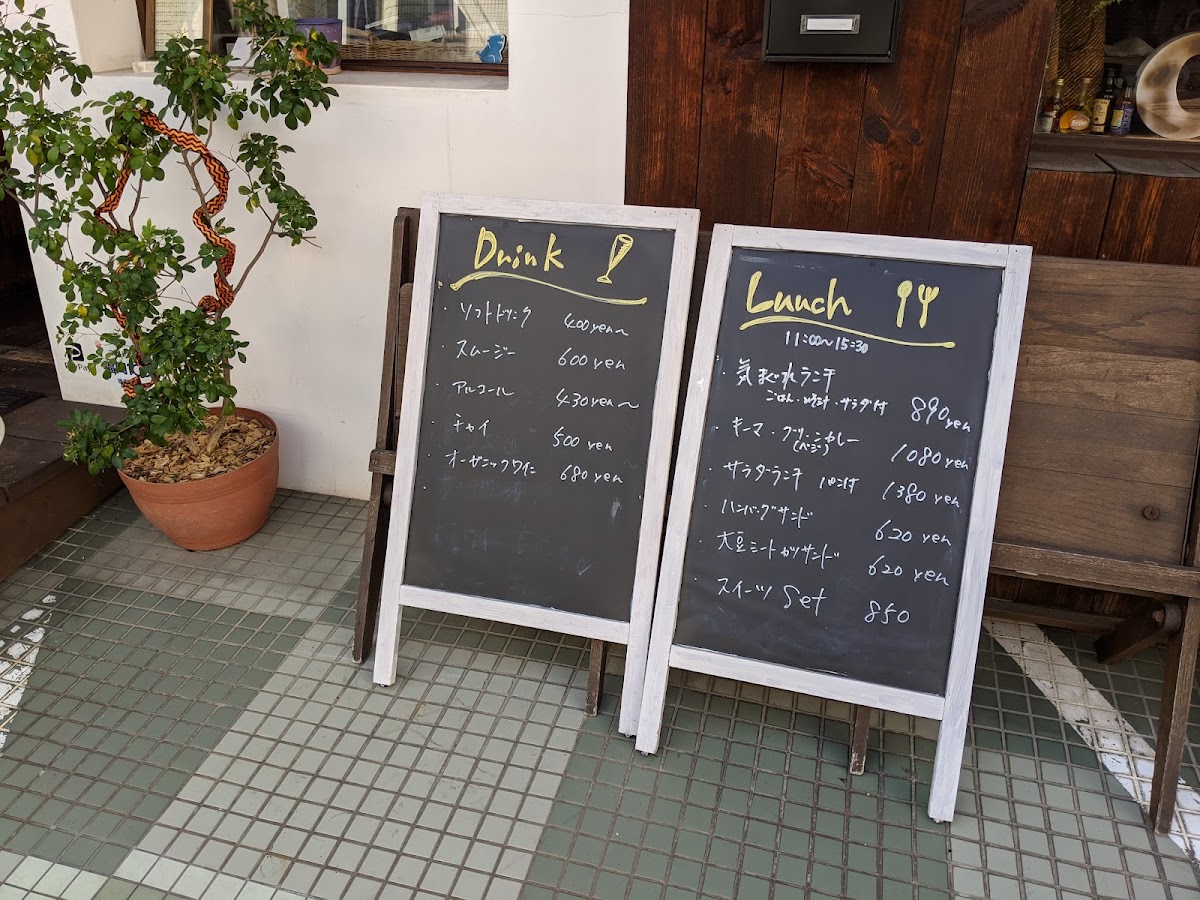 Drink
ソフトドリンク 400yen〜
スムージー 600yen
アルコール 430yen〜
チャイ 500yen
オーガニックワイン 680yen
Lunch
11:00〜15:30
気まぐれランチ 890yen
ごはん・みそ汁・サラダ付
キーマ・グリーンカレー 1080yen
(ベジ)
サラダランチ パン付 1380yen
ハンバーグサンド 620yen
大豆ミートカツサンド 620yen
スイーツ Set 850